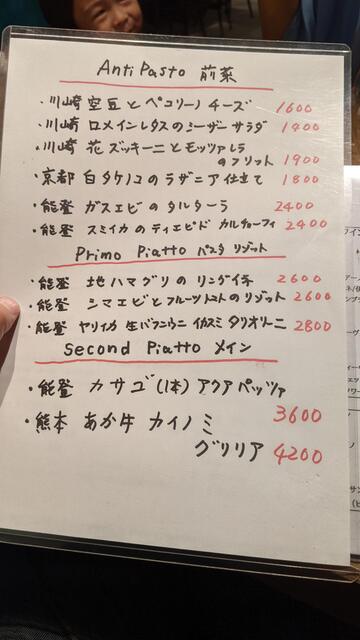 Anti Pasto 前菜
・川崎 空豆とペコリーノ チーズ 1600
・川崎 ロメインレタスのシーザーサラダ 1400
・川崎 花ズッキーニとモッツァレラ
のフリット 1900
・京都 白タケノコのラザニア仕立て 1800
・能登 ガスエビのタルターラ 2400
・能登 スミイカのティエピド カルチョーフィ 2400
Primo Piatto パスタ リゾット
・能登 地ハマグリのリングイネ 2600
・能登 シマエビとフルーツトマトのリゾット 2600
・能登 ヤリイカ 生バフンウニ イカスミ タリオリーニ 2800
Second Piatto メイン
・能登 カサゴ(1本)アクアパッツァ
3600
・熊本 あか牛 カイノミ
グリリア 4200